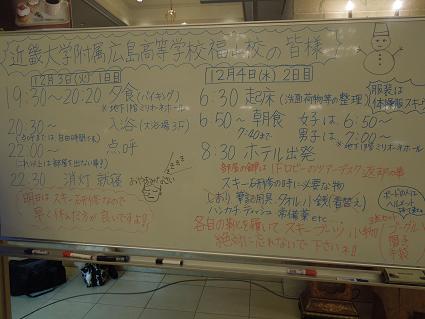 近畿大学附属広島高等学校福山校の皆様
12月3日(火)1日目
19:30~20:20 夕食(バイキング)
※地下1階ミリオネーホール
20:30~ 入浴(大浴場3F)
(点呼までは自由時間です)
22:00~ 点呼
(これ以上は部屋を出ない事)
22:30 消灯 就寝
おやすみなさい
zzzzz
明日はスキー研修なので
早くはんだ方が良いですよ!!
12月4日(水)2日目
服装は
体操服
6:30 起床(洗面荷物等の整理)
6:50~ 朝食 女子は6:50~
7:40まで 男子は7:00~
※地下1階ミリオネーホール
8:30 ホテル出発
部屋の鍵は1Fロビーのツアーデスク返却の事
スキー研修の時に必要な物
しおり 筆記用具 タオル 小銭(着替え)
ハンカチ ティッシュ 常備薬 etc
各自の靴を履いて スキーブーツ 小物
絶対に忘れないで下さいね!!
ボードの人は
ヘルメット
ゴーグル
帽子
手袋